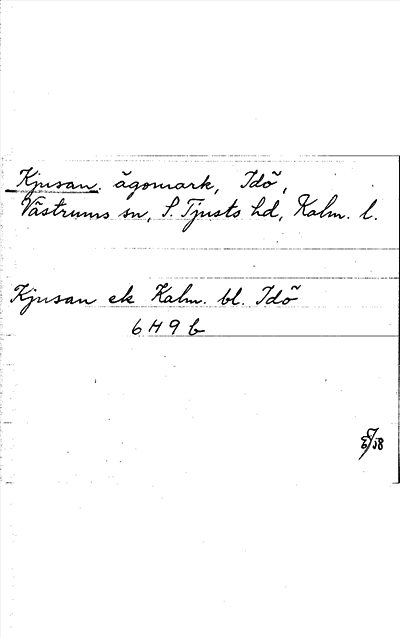 Kjusan. ägomark, Idö,
Västrums sn, S. Tjusts hd, Kalm. l.
Kjusan ek Kalm. bl. Idö
6H9b